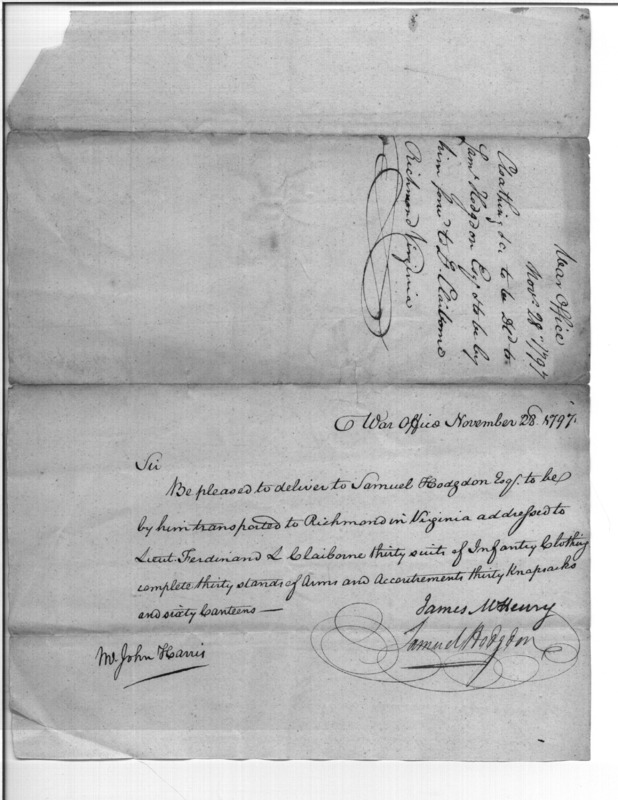 War Office
Nov.r 28th 1797
Cloathing &c. to be Dd. to
Sam.l Hodgdon Esq. & to be by
him forw.d to F. Claiborne
Richmond Virginia
War Office November 28th 1797.
Sir
Be pleased to deliver to Samuel Hodgdon Esqr. to be
by him transported to Richmond in Virginia addressed to
Lieut. Ferdinand L Claiborne thirty suits of Infantry Clothing
complete thirty stands of Arms and Accoutrements thirty Knapsacks
and sixty Canteens —
James McHenry
Samuel Hodgdon
Mr. John Harris